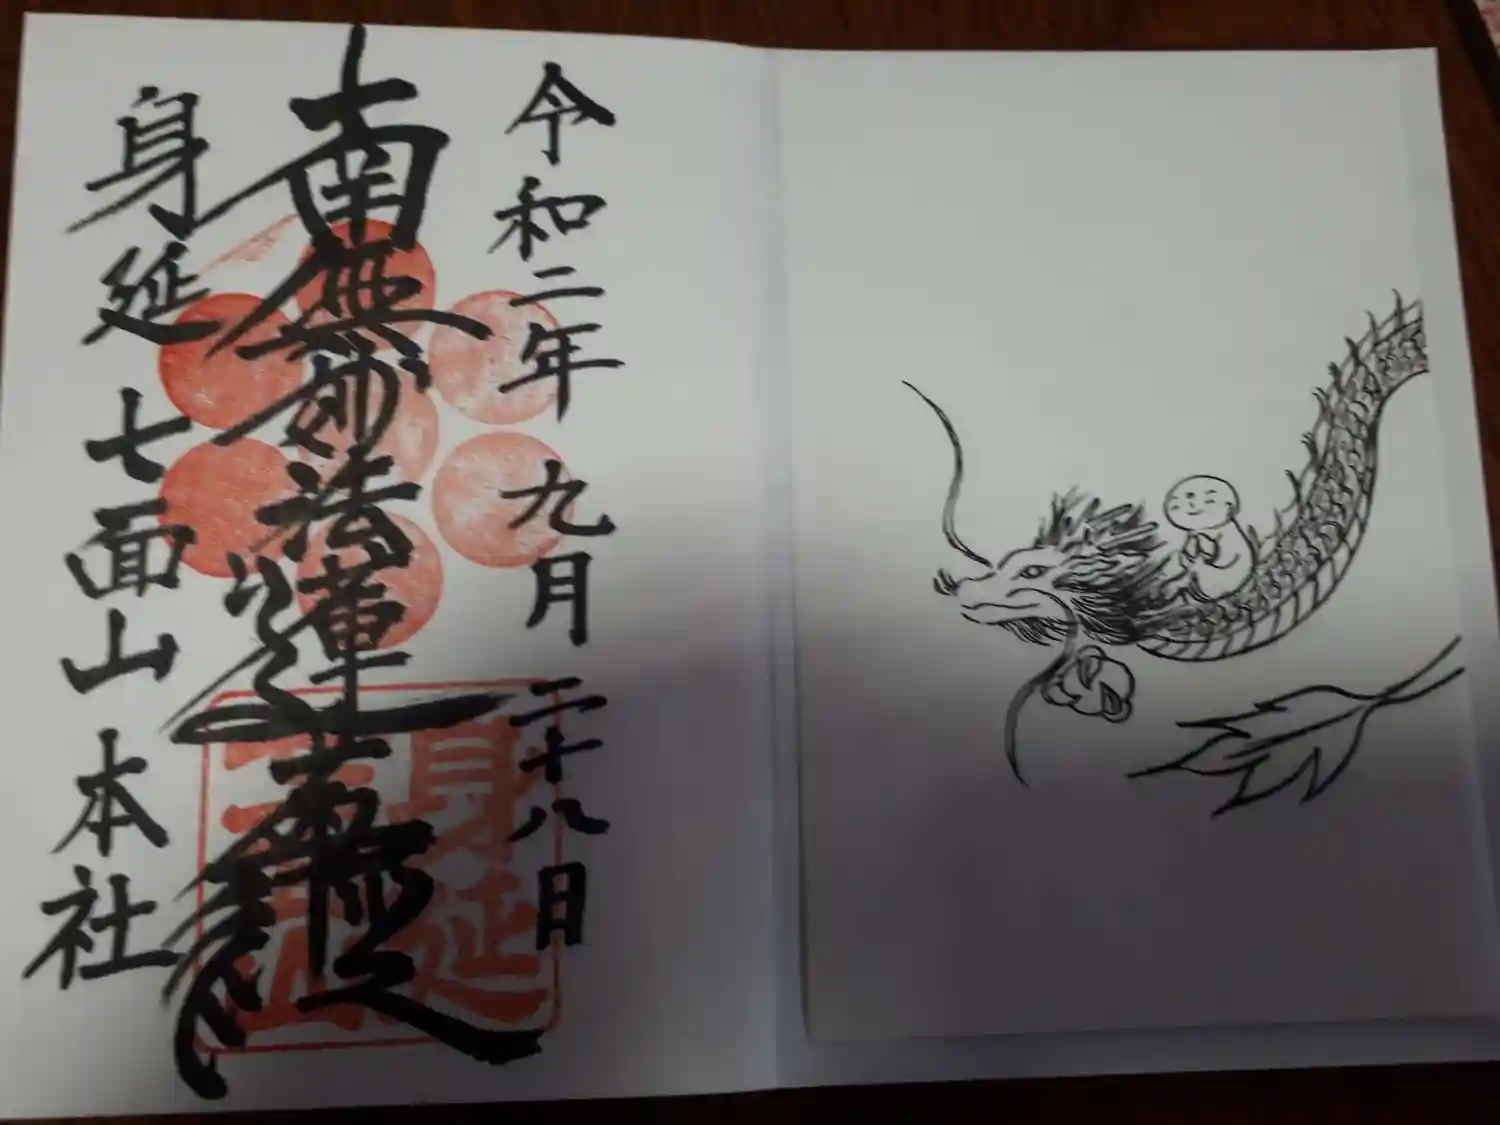 令和二年 九月 二十八日
南無妙法蓮華経
身延 七面山 本社
身延